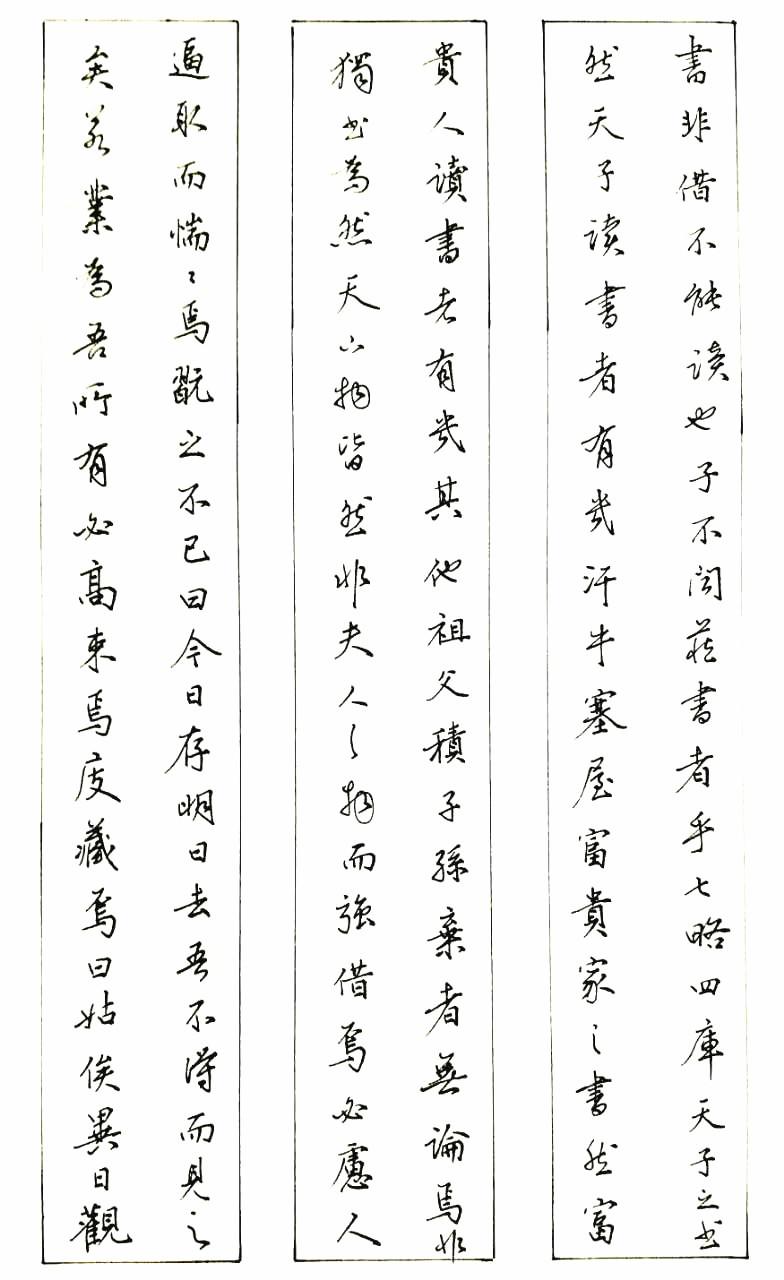 書非借不能读也子不闻藏書者乎七略四庫天子之书
然天子读書者有幾汗牛塞屋富貴家之書然富
貴人讀書者有幾其他祖父積子孫棄者無論焉非
獨书為然天下物皆然非夫人之物而強借焉必慮人
逼取而惴〻焉翫之不已曰今日存明日去吾不得而見之
矣若業為吾所有必高束焉庋藏焉曰姑俟異日觀